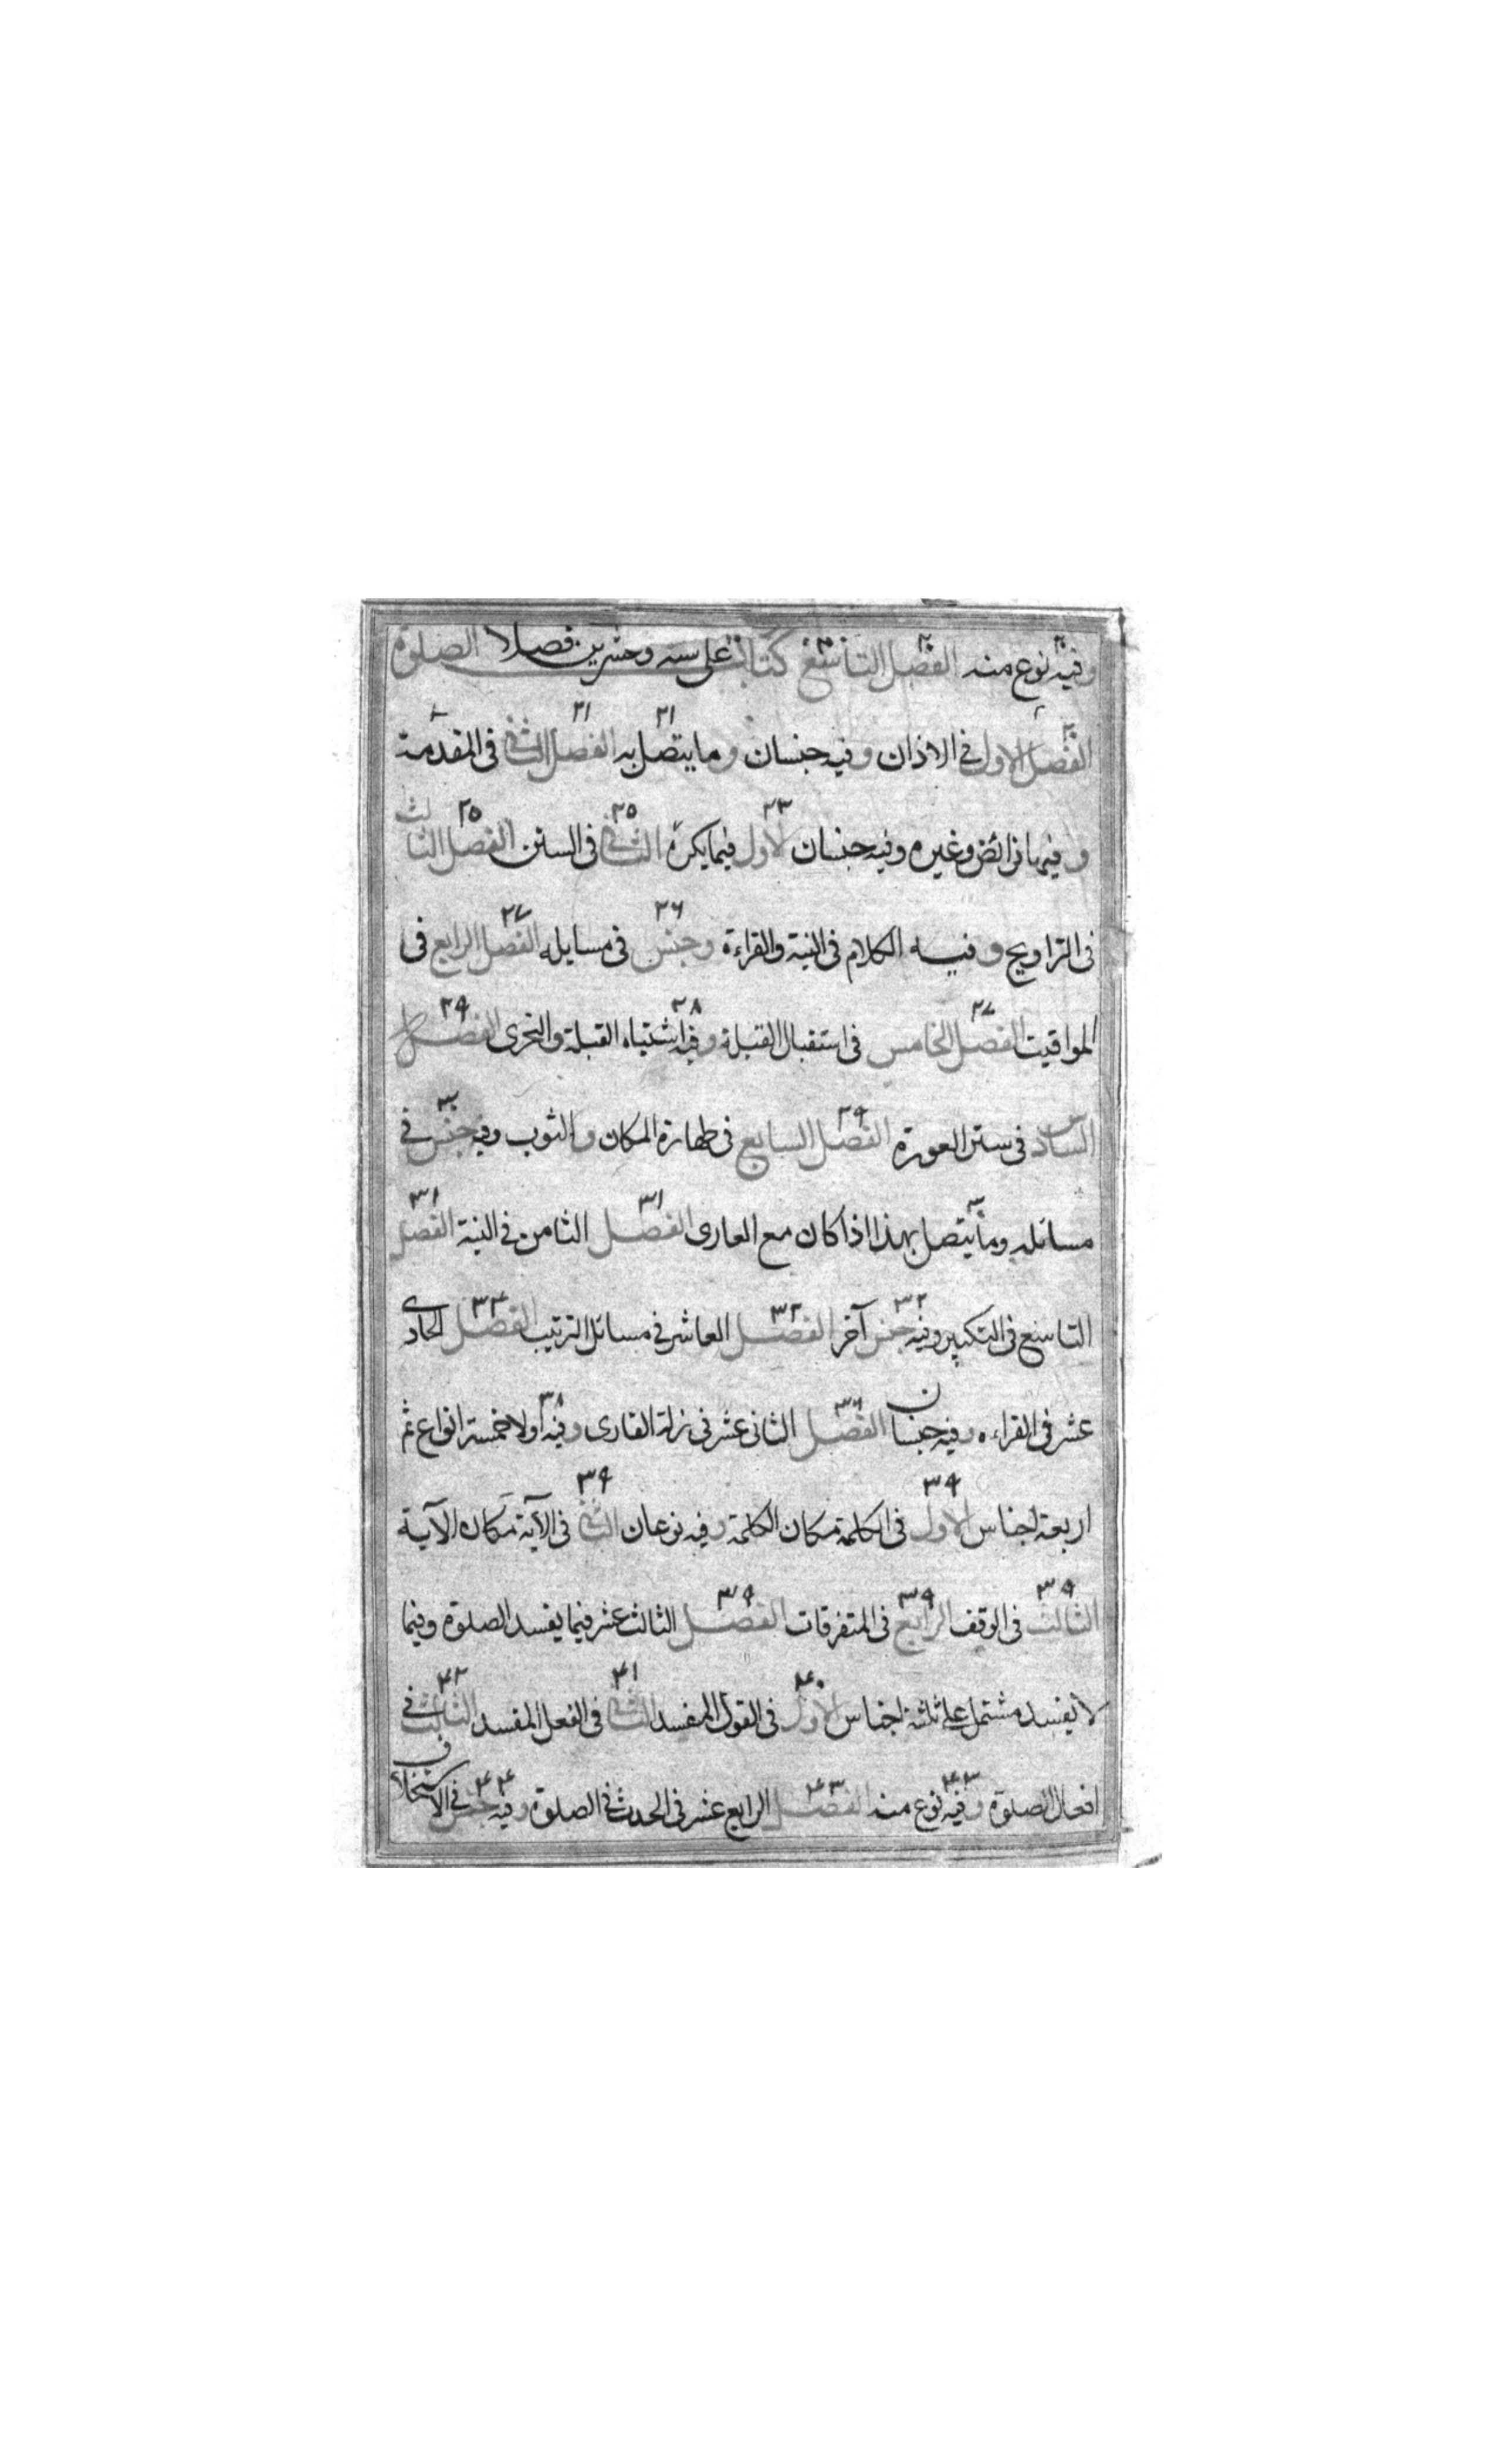 وفيه نوع منه الفصل التاسع كتاب على ستة وعشرين فصلا الصلوة
الفصل الاول في الاذان وفيه جنسان وما يتصل به الفصل الثاني في المقدمة
وفيها فرائض وغيره وفيه جنسان الاول فيما يكره الثاني في السنن الفصل الثالث
في التراويح وفيه الكلام في النية والقراءة وجنس في مسايله الفصل الرابع في
المواقيت الفصل الخامس في استقبال القبلة وفيه اشتباه القبلة والتحرى الفصل
السادس في ستر العورة الفصل السابع في طهارة المكان والثوب وفيه جنس في
مسائله وما يتصل بهذا اذا كان مع العارى الفصل الثامن في النية الفصل
التاسع في التكبير وفيه جنس آخر الفصل العاشر في مسائل الترتيب الفصل الحادى
عشر في القراءه وفيه جنسان الفصل الثانى عشر في زلة القارى وفيه اولا خمسة انواع ثم
اربعة اجناس الاول في الكلمة مكان الكلمة وفيه نوعان الثاني في الآية مكان الآية
الثالث في الوقف الرابع في المتفرقات الفصل الثالث عشر فيما يفسد الصلوة وفيما
لا يفسد مشتمل على ثلثة اجناس الاول في القول المفسد الثاني في الفعل المفسد الثالث في
افعال الصلوة وفيه نوع منه الفصل الرابع عشر في الحدث في الصلوة وفيه جنس في الاستخلاف